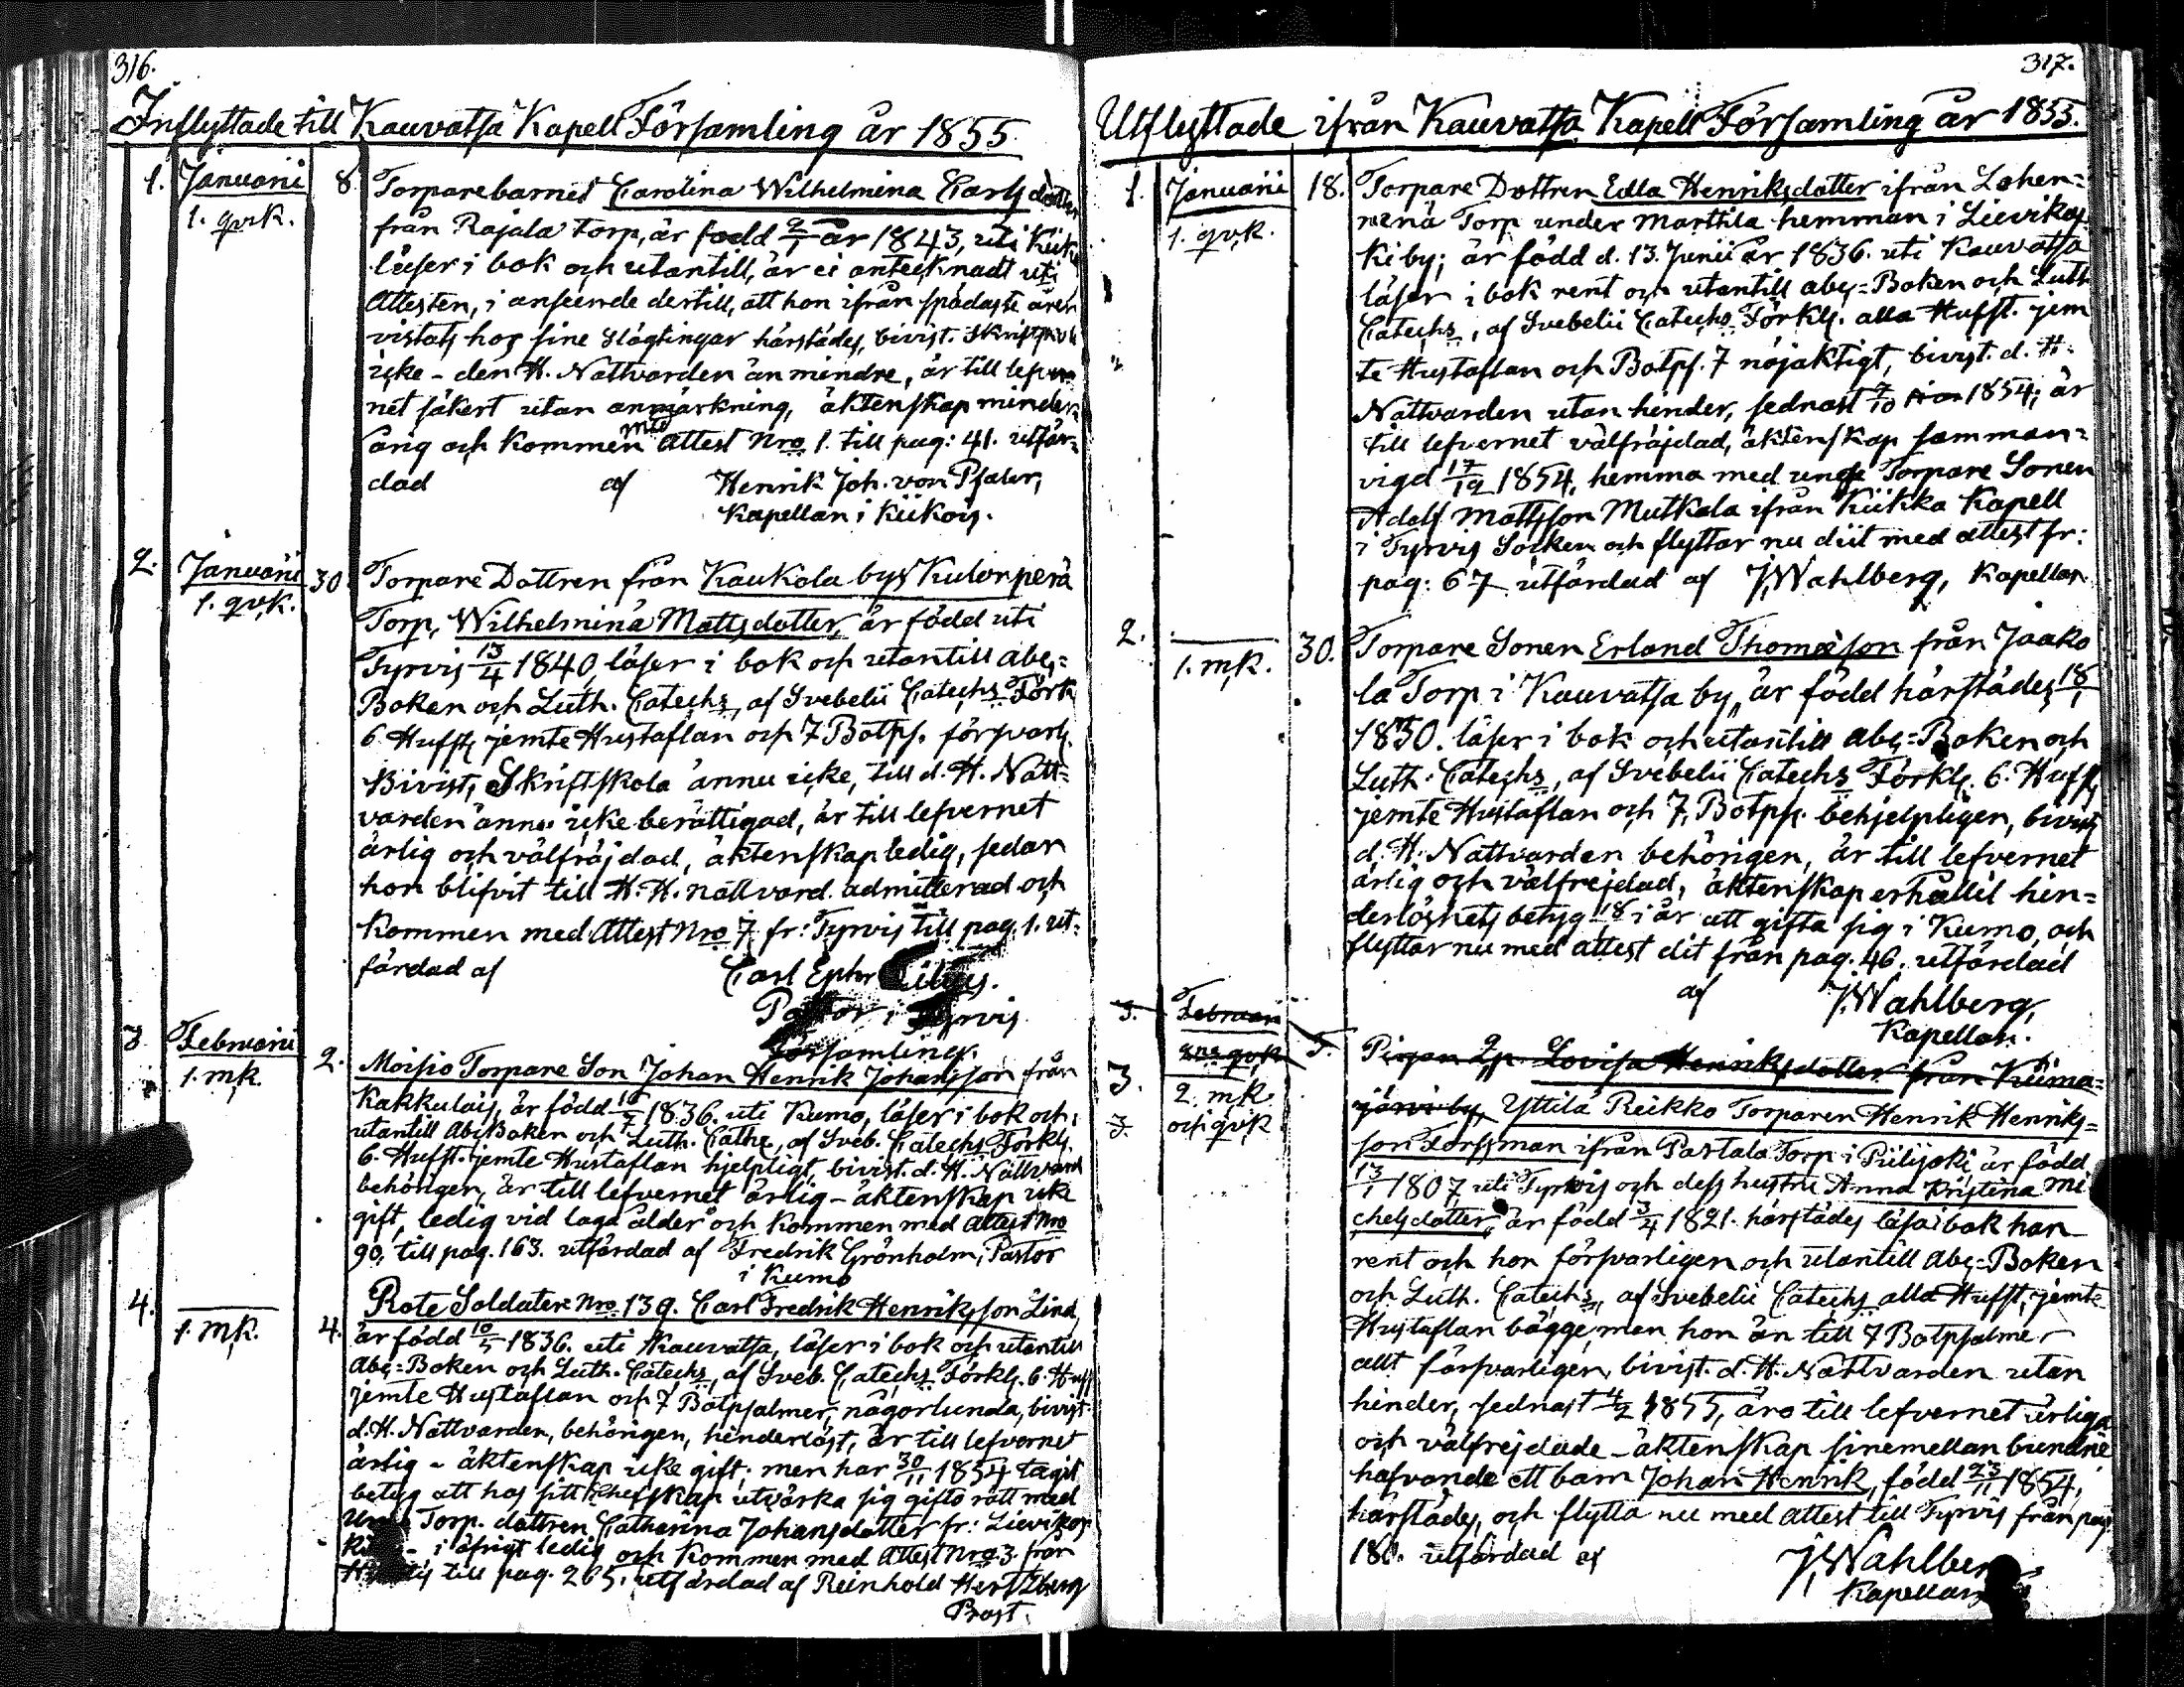 316.
Inflyttade till Kauvatsa Kapell Församling år 1855.
1. Januarii 8 Torparebarnet Carolina Wilhelmina Carlsdotter
1. qvk. från Rajala torp, är född 2/1 år 1843, uti Kiik
läser i bok och utantill, är ei antecknadt uti
Attesten, i anseende dertill, att hon ifrån spädaste åren
vistats hos sine slägtingar härstädes, bivist. Skriftsko
icke - den H. Nattvarden än mindre, är till lefver
net säkert utan anmärkning, äktenskap minder
årig och kommen med Attest Nro 1. till pag: 41. utfär-
dad af Henrik Joh. von Pfaler,
Kapellan i Kiikois.
2. Januarii 30 Torpare Dottren från Kaukola bys Kulonperä
1. qvk. Torp, Wilhelmina Mattsdotter, är född uti
Tyrvis 13/4 1840, läser i bok och utantill abc=
Boken och Luth. Catechs, af Svebelii Catechs Förk
6 Hufst jemte Hustaflan och 7 Botps. försvarl.
Bivist, Skriftskola ännu icke, till d. H. Natt=
varden ännu icke berättigad, är till lefvernet
ärlig och välfräjdad, äktenskap ledig, sedan
hon blifvit till H. H. nattvard. admitterad och
kommen med Attest Nro 7 fr: Tyrvis till pag. 1. ut-
färdad af Carl Ephr
Pastor i Tyrvis
Församling.
3 Februarii 2. Moisio Torpare Son Johan Henrik Johansson från
1. mk. Kakkulais, är född 1836. uti Kumo, läser i bok och
utantill Abc Boken och Luth. Cathe, af Sveb. Catechs Förkl.
6. Hufst. jemte Hustaflan hjelpligt, bivist. d. H. Nattvard
behörigen, är till lefvernet ärlig - äktenskap icke
gift, ledig vid laga ålder och kommen med Attest Nro
90, till pag. 163. utfärdad af Fredrik Grönholm, Pastor
i Kumo
4. 4. Rote Soldaten Nro 139. Carl Fredrik Henriksson Lind,
1. mk. är född 10/5 1836. uti Kauvatsa, läser i bok och utantill
Abc=Boken och Luth. Catechs, af Sveb. Catechs Förkl. 6. Huf
jemte Hustaflan och 7 Botpsalmer, någorlunda, bivist
d. H. Nattvarden, behörigen, hinderlöst, är till lefvernet
ärlig - äktenskap icke gift; men har 30/11 1854 tagit
betyg att hos sitt Chefskap utvärka sig gifto rätt med
Torp. dottren Catharina Johansdotter fr: Lievikos
- i öfrigt ledig och kommen med Attest Nro 3. från
till pag. 265. utfärdad af Reinhold Hertzberg
Prost.
317.
Utflyttade ifrån Kauvatsa Kapell Församling år 1855.
1. Januarii 18. Torpare Dottren Edla Henriksdotter ifrån Lohen=
1. qvk. nenä Torp under Marttila hemman i Lievikos
ki by; är född d. 13. Junii år 1836. uti Kauvatsa
läser i bok rent och utantill abc=Boken och Luth
Catechs, af Svebelii Catechs Förkl. alla Hufst. jem
te Hustaflan och Botps. 7 nöjaktigt, bivist. d. H.
Nattvarden utan hinder, sednast 1854; är
till lefvernet välfräjdad, äktenskap samman=
vigd 17/12 1854, hemma med unge Torpare Sonen
Adolf Mattsson Mutkala ifrån Kiikka Kapell
i Tyrvis Socken och flyttar nu diit med attest fr:
pag: 67 utfärdad af J. Wahlberg, Kapellan.
2. 30. Torpare Sonen Erland Thomasson från Jaako
1. mk. la Torp i Kauvatsa by, är född härstädes 18/1
1830. läser i bok och utantill abc=Boken och
Luth. Catechs, af Svebelii Catechs Förkl. 6. Hufst
jemte Hustaflan och 7, Botps. behjelpligen, bivist
d. H. Nattvarden behörigen, är till lefvernet
ärlig och välfrejdad, äktenskap erhållit hin=
derlöshets betyg i år att gifta sig i Kumo, och
flyttar nu med attest dit från pag. 46. utfärdad
af J. Wahlberg,
Kapellan.
3. Februari 5. Pigan Lovisa Henriksdotter från Kuima=
qvk
3. 2. mk järvi by, Yttilä Reikko Torparen Henrik Henriks=
3. och qvk son Forssman ifrån Pastala Torp i Piilijoki, är född
13/1 1807 uti Tyrvis och dess hustru Anna Kristina Mi
chelsdotter, är född 3/4 1821. härstädes läsa i bok han
rent och hon försvarligen och utantill Abc=Boken
och Luth. Catechs, af Svebelii Catechs alla Hufst, jemte
Hustaflan bägge, men hon än till 7 Botpsalmer
allt försvarligen, bivist. d. H. Nattvarden utan
hinder, sednast 4/2 1855, äro till lefvernet ärliga
och välfrejdade - äktenskap sinemellan bundne
hafvande ett barn Johan Henrik, född 23/11 1854,
härstädes, och flytta nu med Attest till Tyrvis från pag.
utfärdad af J. Wahlberg
Kapellan